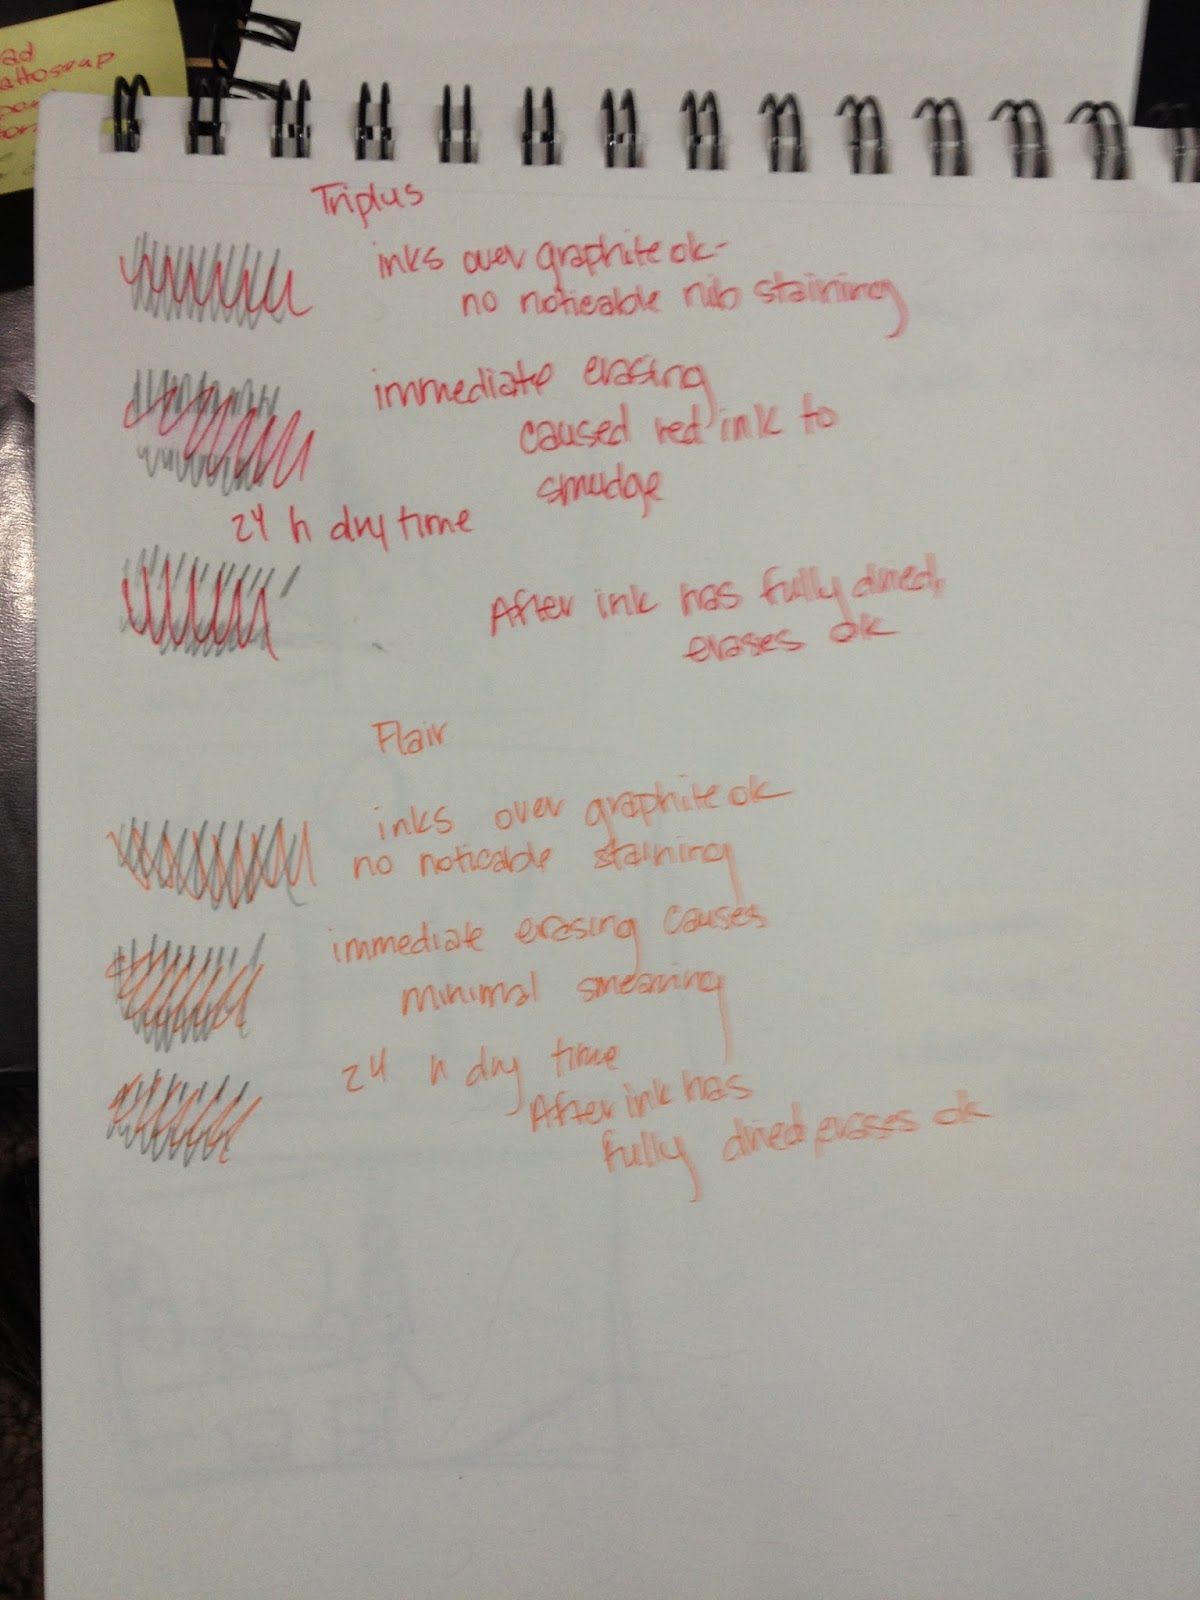 ad
Triplus
inks over graphite ok-
no noticable nib staining
immediate erasing
caused red ink to
smudge
24 h dry time
After ink has fully dried,
erases ok
Flair
inks over graphite ok
no noticable staining
immediate erasing causes
minimal smearing
24 h dry time
After ink has
fully dried, erases ok